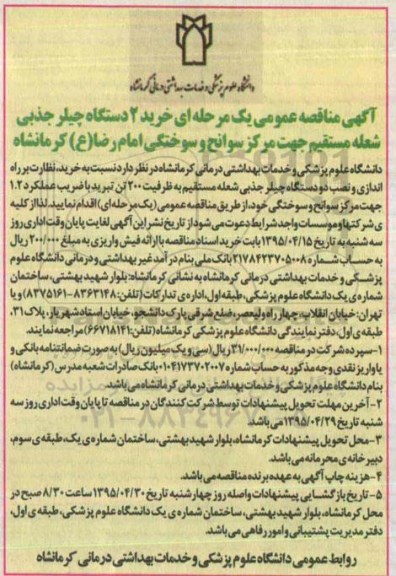 دانشگاه علوم پزشکی و خدمات بهداشتی درمانی کرمانشاه
آگهی مناقصه عمومی یک مرحله ای خرید ۲ دستگاه چیلر جذبی
شعله مستقیم جهت مرکز سوانح و سوختگی امام رضا(ع) کرمانشاه
دانشگاه علوم پزشکی و خدمات بهداشتی درمانی کرمانشاه در نظر دارد نسبت به خرید، نظارت بر راه
اندازی و نصب دو دستگاه چیلر جذبی شعله مستقیم به ظرفیت ۲۰۰ تن تبرید با ضریب عملکرد ۱.۲
جهت مرکز سوانح و سوختگی خود از طریق مناقصه عمومی (یک مرحله ای) اقدام نمایید. لذا از کلیه
ی شرکتها و موسسات واجد شرایط دعوت می شود از تاریخ نشر این آگهی لغایت پایان وقت اداری روز
سه شنبه به تاریخ ۱۳۹۵/۰۴/۱۵ بابت خرید اسناد مناقصه با ارائه فیش واریزی به مبلغ ۲۰۰/۰۰۰ ریال
به حساب شماره ۲۱۷۸۴۲۳۷۰۵۰۰۸ بانک ملی بنام درآمد غیر بهداشتی و درمانی دانشگاه علوم
پزشکی و خدمات بهداشتی درمانی کرمانشاه به نشانی کرمانشاه: بلوار شهید بهشتی، ساختمان
شماره ی یک دانشگاه علوم پزشکی، طبقه اول، اداره ی تدارکات (تلفن: ۸۳۶۳۱۴۸-۸۳۷۵۱۶۱) و یا
تهران: خیابان انقلاب، چهار راه ولیعصر، ضلع شرقی پارک دانشجو، خیابان استاد شهریار، پلاک ۳۱،
طبقه ی اول، دفتر نمایندگی دانشگاه علوم پزشکی کرمانشاه (تلفن: ۶۶۷۱۸۱۴۱) مراجعه نمایند.
۱-سپرده شرکت در مناقصه ۳۱/۰۰۰/۰۰۰ ریال (سی و یک میلیون ریال) به صورت ضمانتنامه بانکی و
یا واریز نقدی وجه مذکور به حساب شماره ۰۱۰۴۱۷۳۷۰۲۰۰۷ بانک صادرات شعبه مدرس (کرمانشاه)
بنام دانشگاه علوم پزشکی و خدمات بهداشتی درمانی کرمانشاه می باشد.
۲-آخرین مهلت تحویل پیشنهادات توسط شرکت کنندگان در مناقصه تا پایان وقت اداری روز سه
شنبه تاریخ ۱۳۹۵/۰۴/۲۹ می باشد.
۳-محل تحویل پیشنهادات کرمانشاه، بلوار شهید بهشتی، ساختمان شماره ی یک، طبقه ی سوم،
دبیرخانه ی محرمانه می باشد.
۴-هزینه چاپ آگهی به عهده برنده مناقصه می باشد.
۵-تاریخ بازگشایی پیشنهادات واصله روز چهارشنبه تاریخ ۱۳۹۵/۰۴/۳۰ ساعت ۸/۳۰ صبح در
محل کرمانشاه، بلوار شهید بهشتی، ساختمان شماره ی یک دانشگاه علوم پزشکی، طبقه ی اول،
دفتر مدیریت پشتیبانی و امور رفاهی می باشد.
روابط عمومی دانشگاه علوم پزشکی و خدمات بهداشتی درمانی کرمانشاه